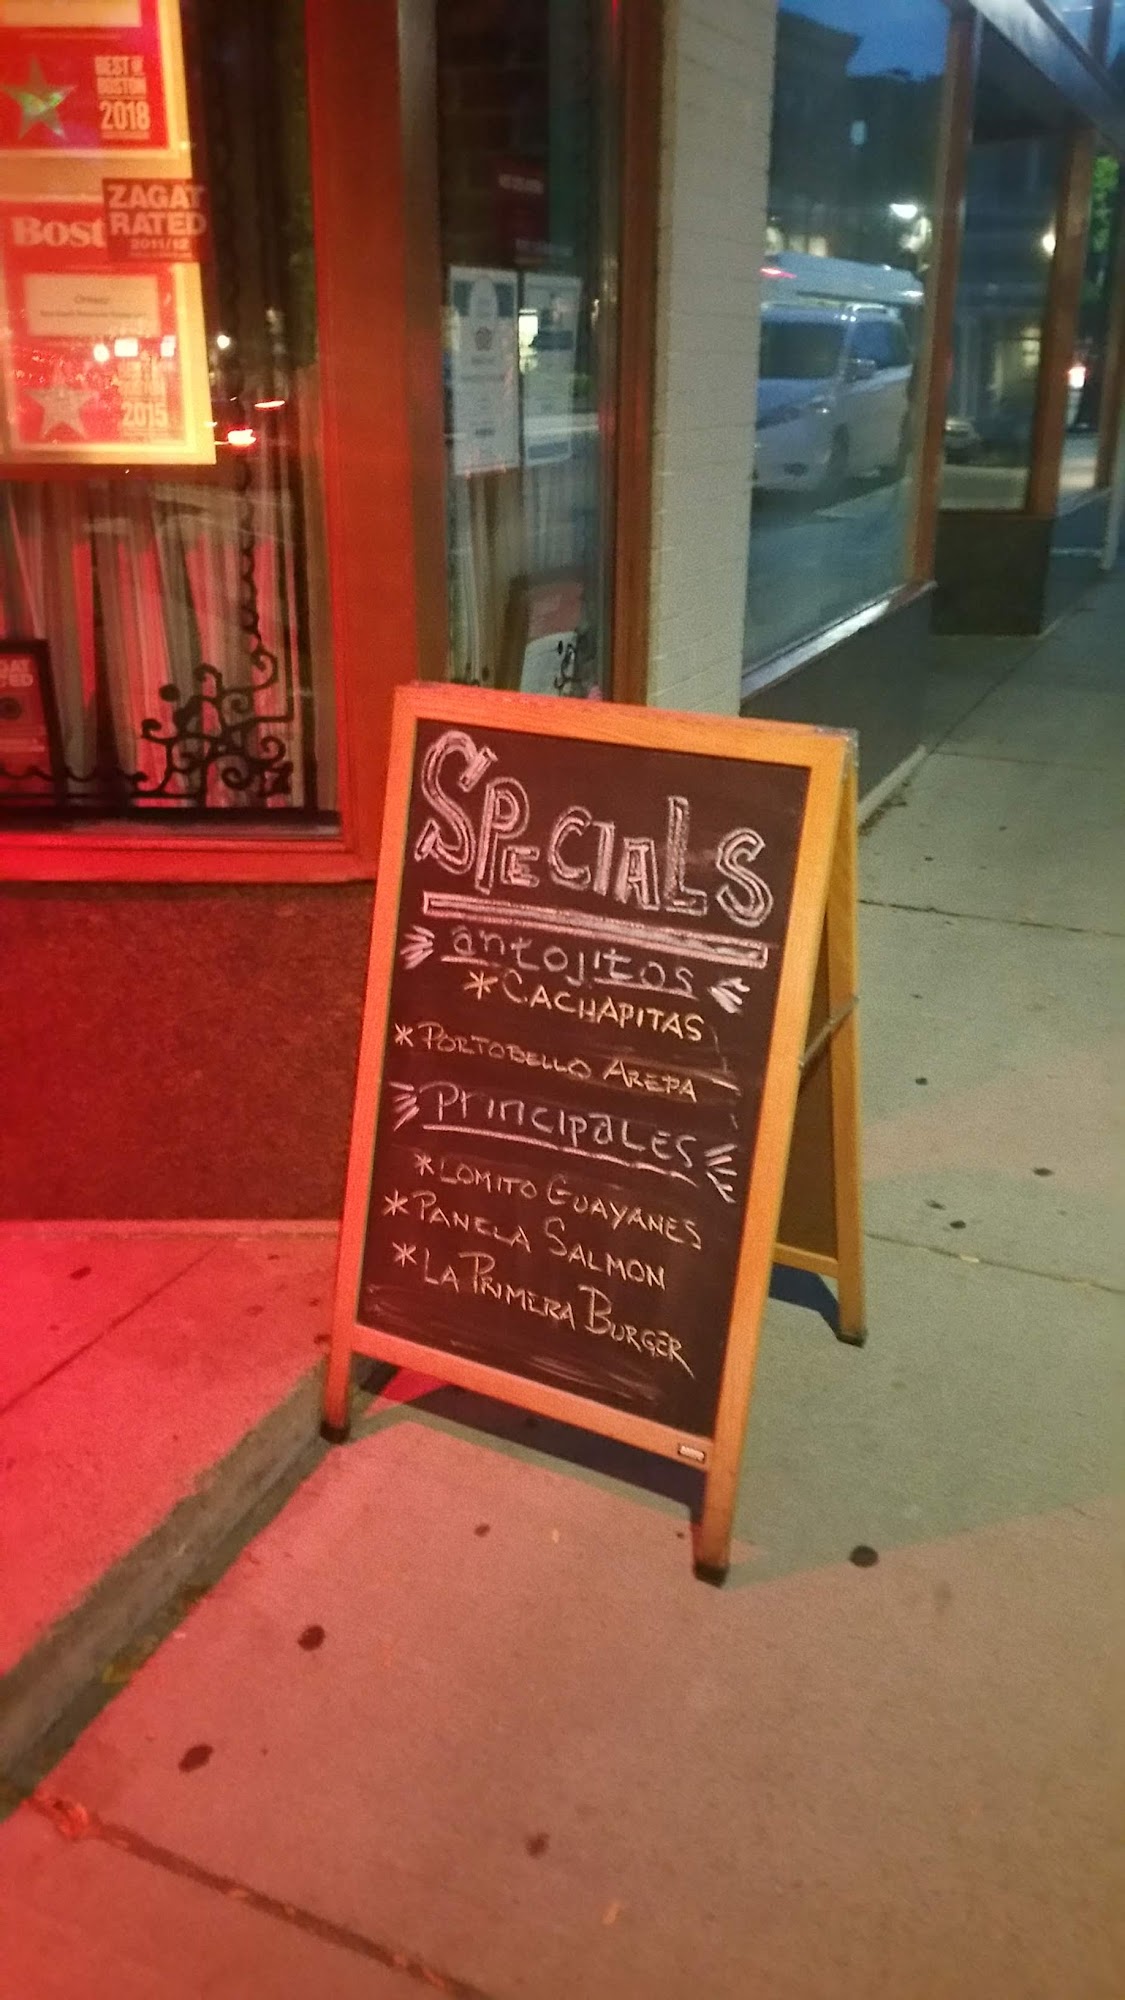 BEST OF
BOSTON
2018
ZAGAT
RATED
2011/12
Bost
2015
GAT
TED
SPECIALS
antojitos
*CACHAPITAS
*PORTOBELLO AREPA
PrincipaLES
*LOMITO GUAYANES
*PANELA SALMON
*LA PRIMERA BURGER